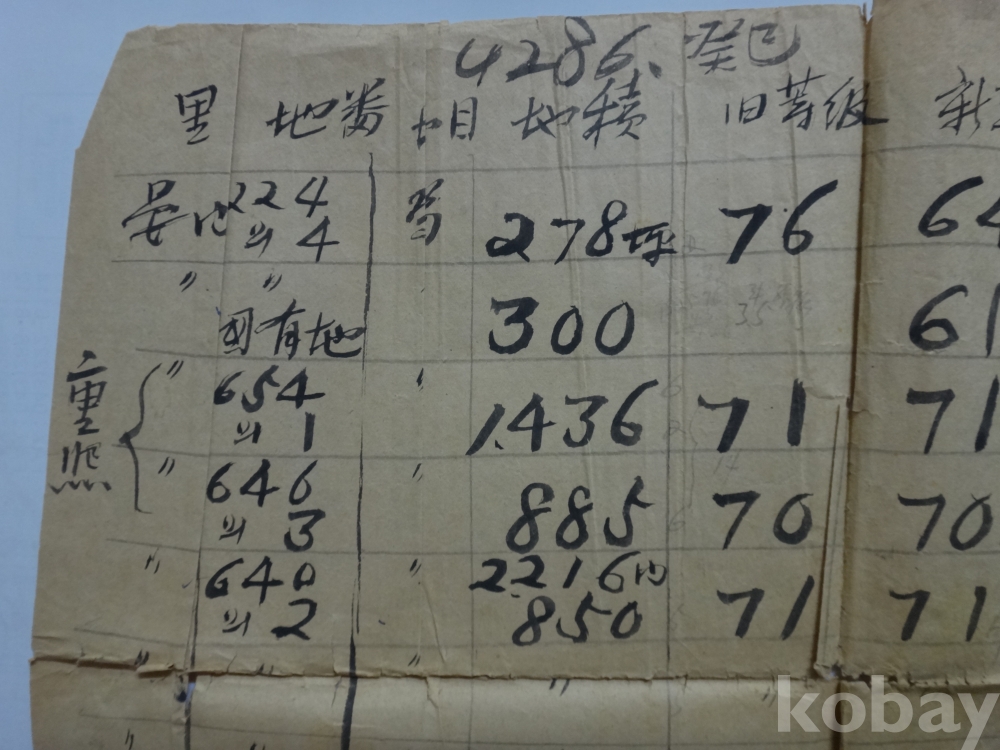 4286. 癸巳
里 地番 地目 地積 旧等級 新
晏地 224의4 畓 278坪 76 64
〃 〃 國有地 300 61
重熙
〃 654의1 〃 1,436 71 71
〃 646의3 〃 885 70 70
〃 640의2 〃 2,216內 850 71 71
〃 〃 〃
〃 〃
kobay